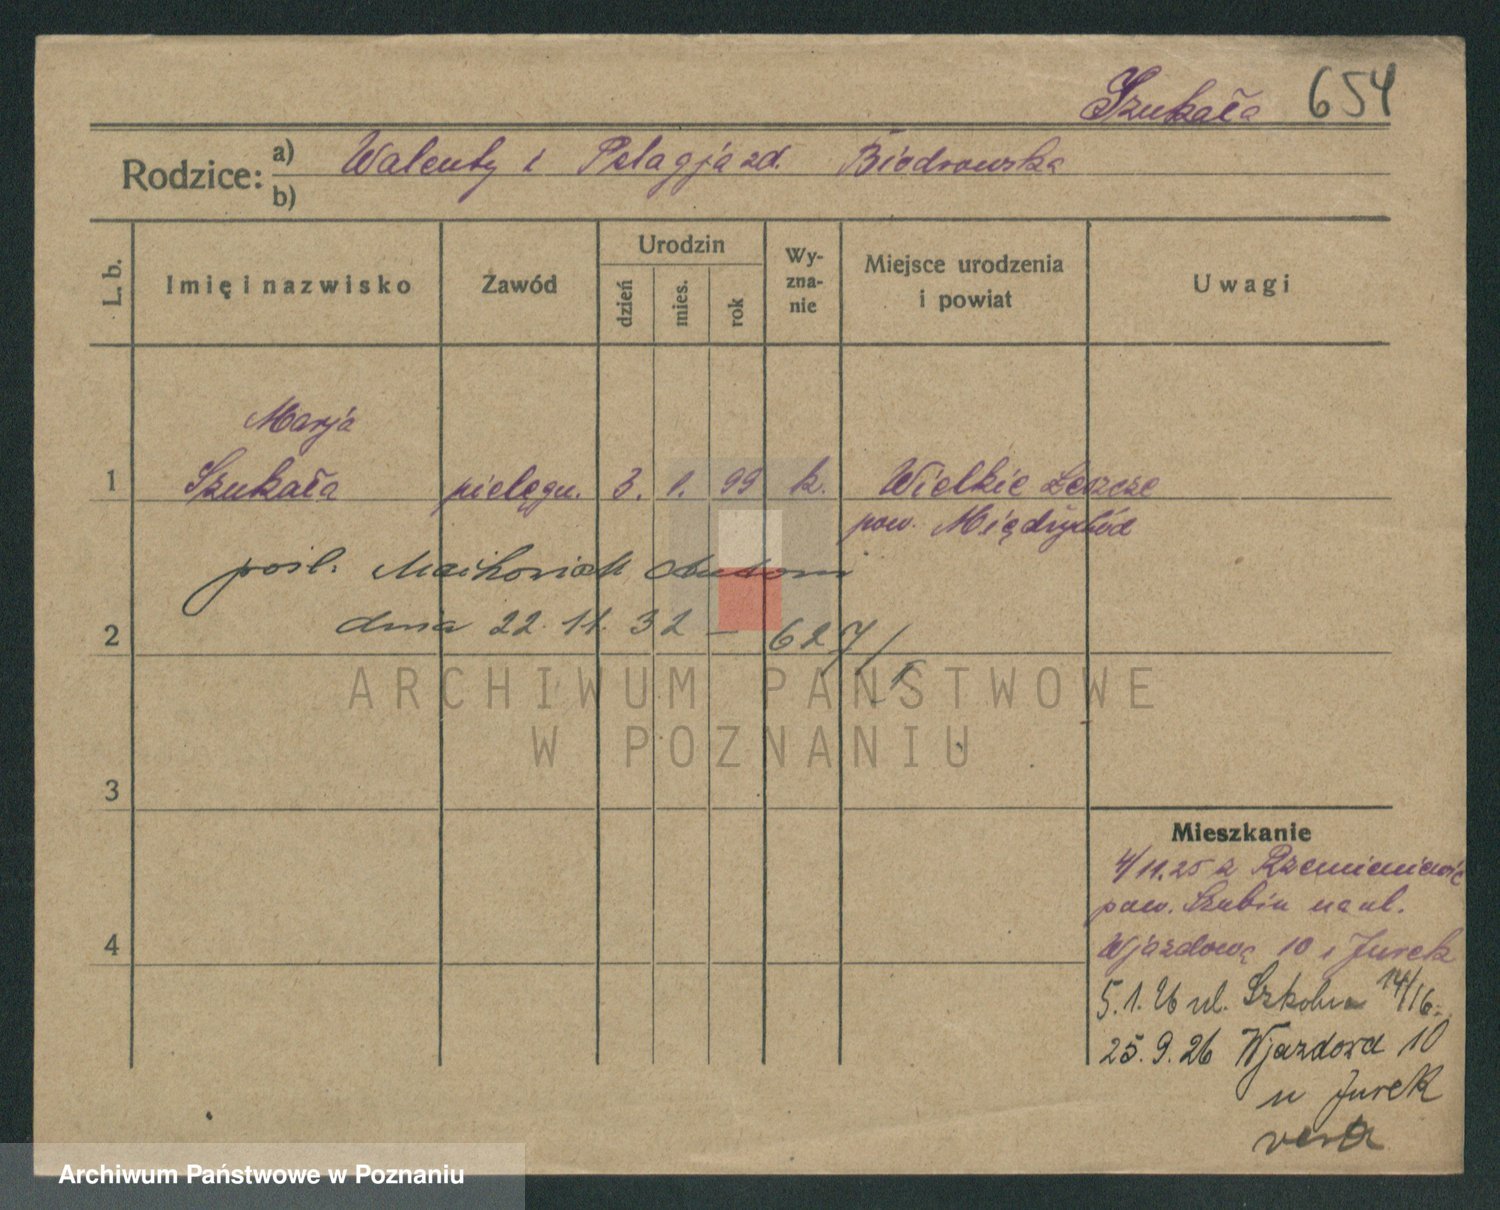 Szukała 654
Rodzice: a) Walenty i Pelagja zd. Biodrowska
b)
L. b. Imię i nazwisko Zawód Urodzin dzień mies. rok Wy-zna-nie Miejsce urodzenia i powiat Uwagi
Marja
1 Szukała pielęgn. 3. 1. 99 k. Wielkie Leszcze
pow. Międzychód
pośl. Antoni
dnia 22. 11. 32 – 627/
2
ARCHIWUM PAŃSTWOWE
W POZNANIU
3
Mieszkanie
4/11.25 z
pow. Szubin na ul.
4
Wjazdową 10 i Jurek
5.1.26 ul. Szkolna 14/16.
25.9.26 Wjazdowa 10
u Jurek
Archiwum Państwowe w Poznaniu